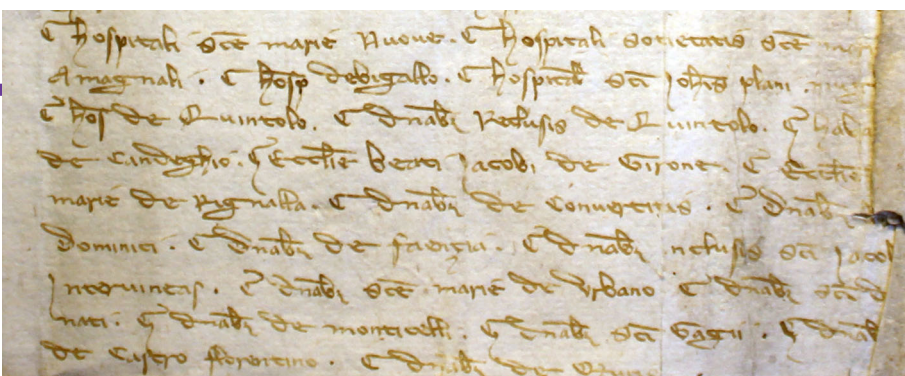 ⁊ hospitali sce marie Nuove. ⁊ hospitali societatis sce
Amagnali. ⁊ hosp debigallo. ⁊ hospitali sci johis plani.
⁊ hos de Quintolo. ⁊ dnab Reclusis de Quintolo. ⁊
de Candeghio. ⁊ Ecclie beati Jacobi de Girone. ⁊ Ecclie
marie de Rignalla. ⁊ dnab de Convertitas. ⁊ dnab
Dominici. ⁊ dnab de faençia. ⁊ dnab inclusis sci Jacob
Intervineas. ⁊ dnab sce marie de Urbano ⁊ dnab sci d
nati. ⁊ dnab de monticelli. ⁊ dnab sci Gagii. ⁊ dnab
de Castro florentino. ⁊ dnab de